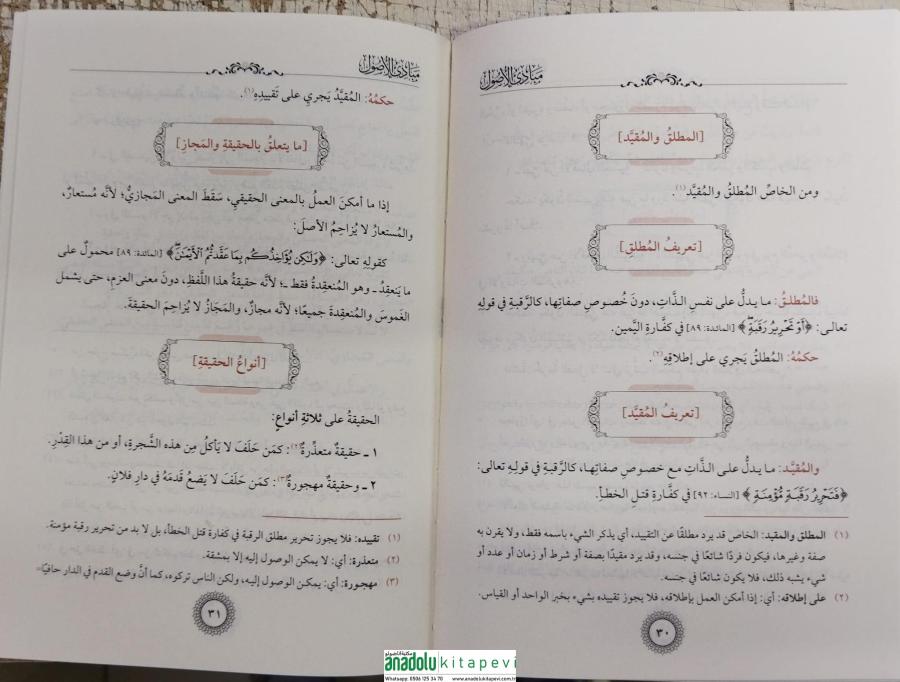 مبادئ الأصول
[المطلقُ والمُقيَّد]
ومن الخاصِّ المُطلقُ والمُقيَّد(١).
[تعريفُ المُطلقِ]
فالمُطلقُ: ما يدلُّ على نفسِ الذَّاتِ، دون خُصوصِ صفاتِها، كالرَّقبةِ في قولِهِ
تعالى: ﴿أَوْ تَحْرِيرُ رَقَبَةٍ﴾ [المائدة: ٨٩] في كفَّارةِ اليَّمين.
حكمُهُ: المُطلقُ يَجري على إطلاقِهِ(٢).
[تعريفُ المُقيَّد]
والمُقيَّد: ما يدلُّ على الذَّات مع خصوصِ صفاتِها، كالرَّقبةِ في قولِهِ تعالى:
﴿فَتَحْرِيرُ رَقَبَةٍ مُّؤْمِنَةٍ﴾ [النساء: ٩٢] في كفَّارةِ قتلِ الخطأ.
(١) المطلق والمقيد: الخاص قد يرد مطلقًا عن التقييد، أي يذكر الشيء باسمه فقط، ولا يقرن به
صفة وغيرها، فيكون فردًا شائعًا في جنسه، وقد يرد مقيدًا بصفة أو شرط أو زمان أو عدد أو
شيء يشبه ذلك، فلا يكون شائعًا في جنسه.
(٢) على إطلاقه: أي: إذا أمكن العمل بإطلاقه، فلا يجوز تقييده بشيء بخبر الواحد أو القياس.
٣٠
مبادئ الأصول
حكمُهُ: المُقيَّدُ يَجري على تَقييدِهِ(١).
[ما يتعلقُ بالحقيقةِ والمَجازِ]
إذا ما أمكنَ العملُ بالمعنى الحقيقيِ، سَقَطَ المعنى المَجازيُّ؛ لأنَّه مُستعارٌ،
والمُستعارُ لا يُزاحِمُ الأصلَ:
كقولِهِ تعالى: ﴿وَلَٰكِن يُؤَاخِذُكُم بِمَا عَقَّدتُّمُ الْأَيْمَٰنَ﴾ [المائدة: ٨٩] محمولٌ على
ما يَنعقِدُ ـ وهو المُنعقِدةُ فقط ـ؛ لأنَّه حقيقةُ هذا اللَّفظِ، دونَ معنى العزمِ، حتى يشمل
الغَموسَ والمُنعقِدةَ جميعًا؛ لأنَّه مجازٌ، والمَجازُ لا يُزاحِمَ الحقيقةَ.
[أنواعُ الحقيقةِ]
الحقيقةُ على ثلاثةِ أنواعٍ:
١ ـ حقيقةٌ متعذِّرةٌ(٢): كمَن حَلَفَ لا يَأكلُ مِن هذه الشَّجرةِ، أو من هذا القِدْرِ.
٢ ـ وحقيقةٌ مهجورةٌ(٣): كمَن حَلَفَ لا يَضعُ قَدمَهُ في دارِ فلانٍ.
(١) تقييده: فلا يجوز تحرير مطلق الرقبة في كفارة قتل الخطأ، بل لا بد من تحرير رقبة مؤمنة.
(٢) متعذرة: أي: لا يمكن الوصول إليه إلا بمشقة.
(٣) مهجورة: أي: يمكن الوصول إليه، ولكن الناس تركوه، كما أنَّ وضع القدم في الدار حافيًا=
٣١
مكتبة اناضولو
anadolu kitapevi
Whatsapp: 0506 125 34 78 www.anadolukitapevi.com.tr